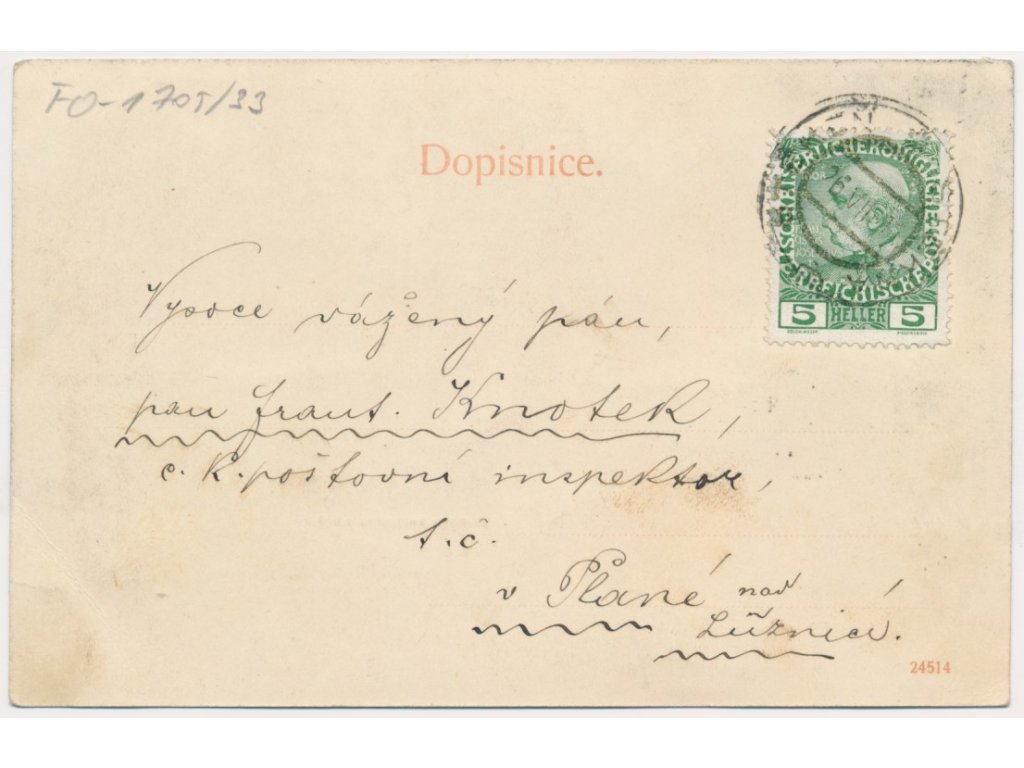 FO-1705/33
Dopisnice.
KAISERLICHE KÖNIGLICHE
ÖSTERREICHISCHE POST
5 HELLER 5
Vysoce vážený pán,
pan Frant. Knotek,
c. k. poštovní inspektor,
t. č.
v Plané nad
Lužnicí.
24514